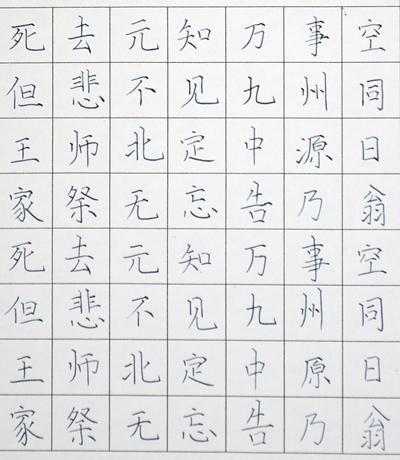 死去元知万事空
但悲不见九州同
王师北定中源日
家祭无忘告乃翁
死去元知万事空
但悲不见九州同
王师北定中原日
家祭无忘告乃翁